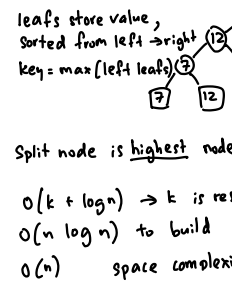 leafs store value,
sorted from left → right
12
key = max (left leafs)
7
7 12
Split node is highest node
O(k + log n) → k is
O(n log n) to build
O(n) space